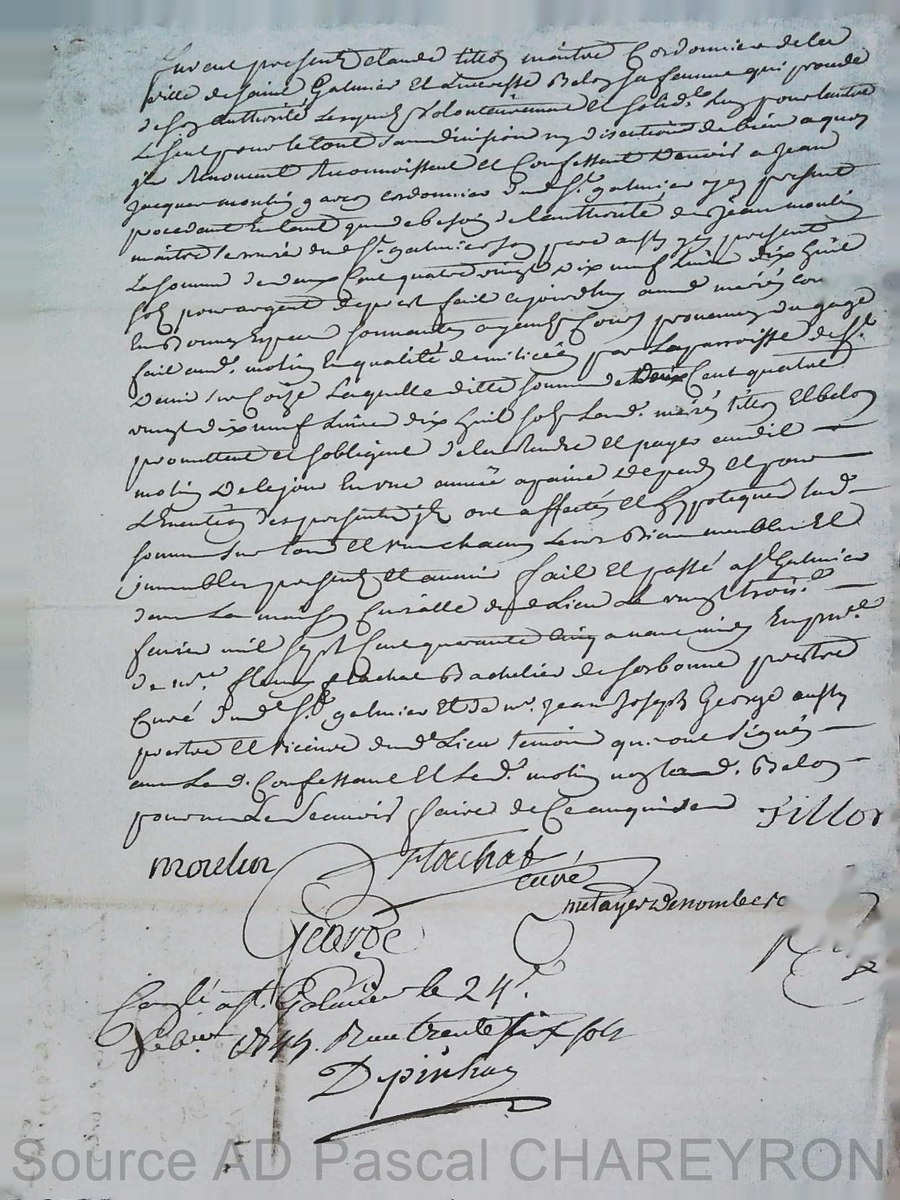 furent present Claude tillon maitre Cordonnier de la
ville de saint Galmier Et Lucresse Belon sa femme qui procede
de son authorité Lesquels volontairement et solid.t Lun pour lautre
Le seul pour le tout sans division ny discution de bien a quoy
ils Renoncent Reconnoissent et Confessent devoir a Jean
Jacques moulin garçon cordonnier dud. S.t galmier icy present
procedant En tant que de besoin de Lauthorité de Jean moulin
maitre dud. S.t galmier son pere aussy icy present
La somme de deux Cent quatre vingt dix neuf Livre dix huit
sols pour argent de prest fait ce jourdhuy aud. mariés
En Bonnes Espece sonnantes ayant Cours provenus du gage
fait aud. molin En qualité de milicien par La parroisse de St.
Denis sur Coize Laquelle ditte somme de deux Cent quatre
vingt dix neuf Livre dix huit sols Les d. mariés tillon Et belon
promettent et sobligent de la Rendre et payer audit
molin De ce jour En une année a paine De perds et pour
L'Execution des presentes ils ont affectés et hypotequés lad.
somme sur tous et un chacun Leurs Biens meubles Et
immubles presents Et avenir fait Et passé a St Galmier
dans La maison Curialle dud. Lieu Le vingt trois.e
fevrier mil sept Cent quarante cinq avant midy En pnce.
de mre. flachat Bachelier de sorbonne prestre
Curé dud. S.t galmier Et de mr. Jean Joseph George aussy
prestre et viccaire dud. Lieu temoins qui ont signés
avec Led. Confessant Et Led. molin non Lad. Belon
pour ne Le scavoir faire de Ce enquise
Tillon
moulin
flachat
curé
metayer Denombere
George
Conlé a St. Galmier le 24.e
febvr. 1745. Recu trente six sols
Depinhac
Source AD Pascal CHAREYRON